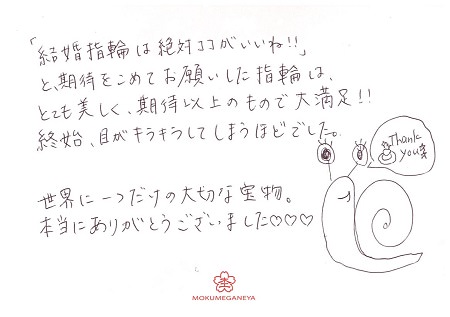 「結婚指輪は絶対ココがいいね!!」
と、期待をこめてお願いした指輪は、
とても美しく、期待以上のもので大満足!!
終始、目がキラキラしてしまうほどでした。
Thank
you
世界に一つだけの大切な宝物。
本当にありがとうございました♡♡♡
MOKUMEGANEYA